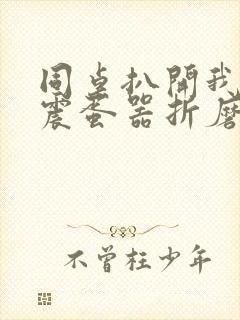 同桌扒開我
震蛋器折磨
不曾枉少年